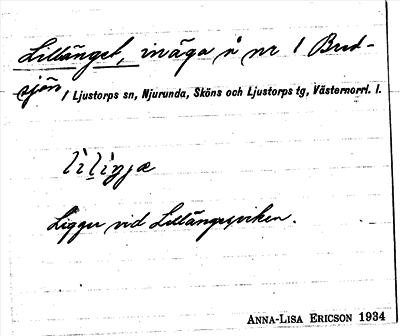 Lillänget, inäga å nr 1 Bred-
sjön
i Ljustorps sn, Njurunda, Sköns och Ljustorps tg, Västernorrl. l.
Ligger vid Lillängesviken.
ANNA-LISA ERICSON 1934